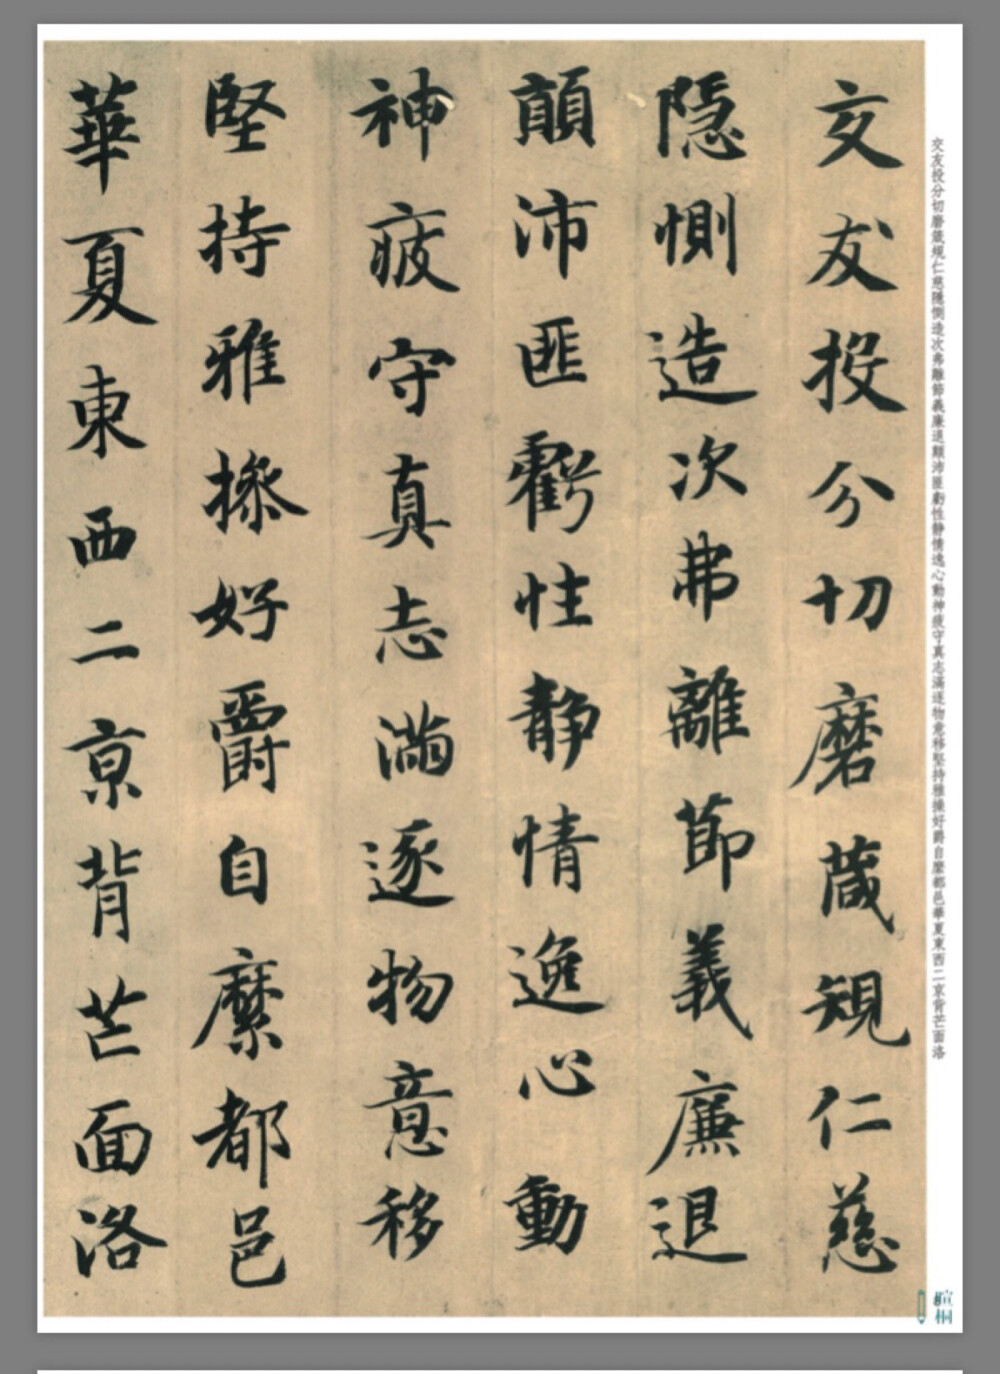 交友投分切磨葴規仁慈
隱惻造次弗離節義廉退
顛沛匪虧性靜情逸心動
神疲守真志滿逐物意移
堅持雅操好爵自縻都邑
華夏東西二京背芒面洛
交友投分切磨箴規仁慈隱惻造次弗離節義廉退顛沛匪虧性靜情逸心動神疲守真志滿逐物意移堅持雅操好爵自縻都邑華夏東西二京背芒面洛
暄桐